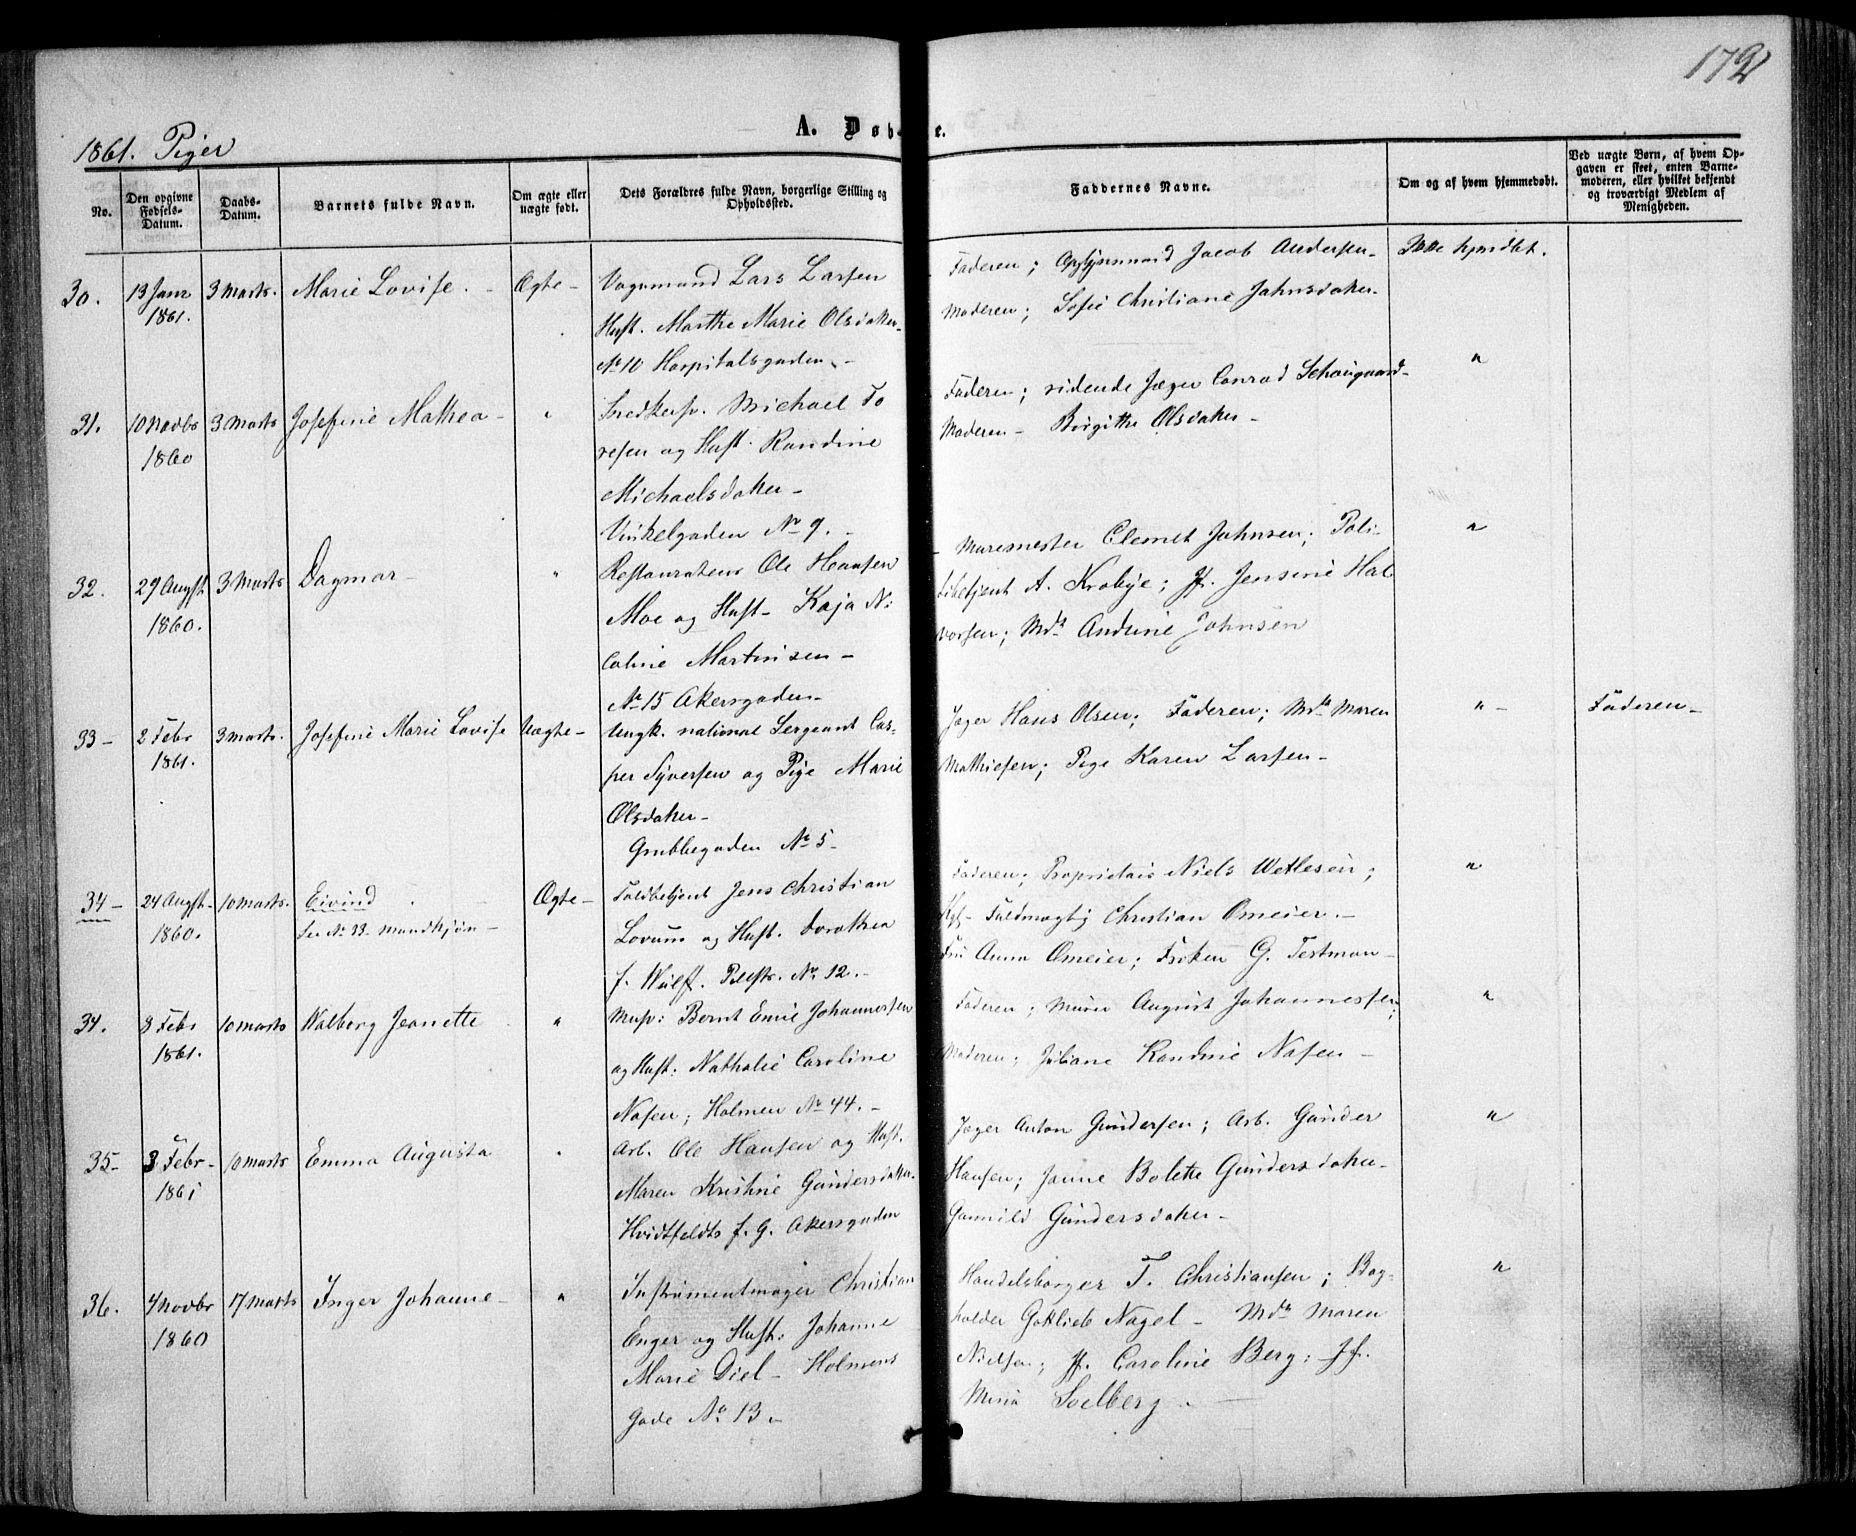 172
1861. Piger
A. Døb
e.
No.
Den opgivne Fødsels-Datum.
Daabs-Datum.
Barnets fulde Navn.
Om ægte eller uægte født.
Dets Forældres fulde Navn, borgerlige Stilling og Opholdssted.
Faddernes Navne.
Om og af hvem hjemmedøbt.
Ved uægte Børn, af hvem Opgaven er skeet, enten Barnemoderen, eller hvilket bekjendt og troværdigt Medlem af Menigheden.
30. 13 Janr 1861. 3 Marts. Marie Lovise. Ægte –
Vognmand Lars Larsen
Hust. Marthe Marie Olsdatter
No 10 Hospitalsgaden. –
Faderen; Opsynsmand Jacob Andersen –
Moderen; Sofie Christiane Jahnsdatter
Ikke hjemdbt.
31. 10 Novbr 1860 3 Marts Josefine Mathea – "
Snedkersv. Michael To
resen og Hust. Randine
Michaelsdatter –
Vinkelgaden No 9. –
Faderen; ridende Jæger Conrad Schougaard –
Moderen – Birgitte Olsdatter –
"
32. 29 Augst 1860. 3 Marts Dagmar – "
Restaurateur Ole Hansen
Moe og Hust – Kaja Ni
coline Martinsen –
No 15 Akersgaden –
Muremester Clemet Johnsen; Poli-
tibetjent A. Krabye; Jf. Jensine Hal
vorsen; Mdm Andrine Johnsen
"
33 – 2 Febr 1861. 3 Marts. Josefine Marie Lovise Uægte –
Ungk. national Sergeant Cas-
per Syversen og Pige Marie
Olsdatter –
Grubbegaden No 5 –
Jæger Hans Olsen; Faderen; Mdm Maren
Mathiesen; Pige Karen Larsen –
" –
Faderen –
34 – 24 Augst 1860. 10 Marts. Eivind Ægte –
See No 33 Mandkjøn –
Toldbetjent Jens Christian
Lorum og Hust. Dorothea
f. Wulff. Pilestr. No 12. –
Faderen; Proprietair Niels Wetlesen;
Kgl. Fuldmægtig Christian Omeier. –
Fru Anna Omeier; Frøken G. Testman –
"
34. 8 Febr 1861. 10 Marts Walborg Jeanette "
Musv: Bernt Emil Johannessen
og Hust: Nathalie Caroline
Nasen; Holmen No 44. –
Faderen; Murer August Johannessen;
Moderen; Juliane Randine Nasen –
"
35 – 3 Febr – 1861 10 Marts Emma Augusta "
Arb. Ole Hansen og Hust.
Maren Kristine Gundersdatter
Hvidtfeldts f. G. Akersgaden
Jæger Anton Gundersen; Arb. Gunder
Hansen; Janne Bolette Gundersdatter –
Gunnild Gundersdatter –
"
36. 4 Novbr 1860 17 Marts Inger Johanne – "
Instrumentmager Christian
Enger og Hust: Johanne
Marie Diel – Holmens
Gade No 13 –
Handelsborger T. Christiansen; Bog-
holder Gottlieb Nagel – Mdm Maren
Nielsen; Jf. Caroline Berg; Jf.
Mina Soelberg. –
"